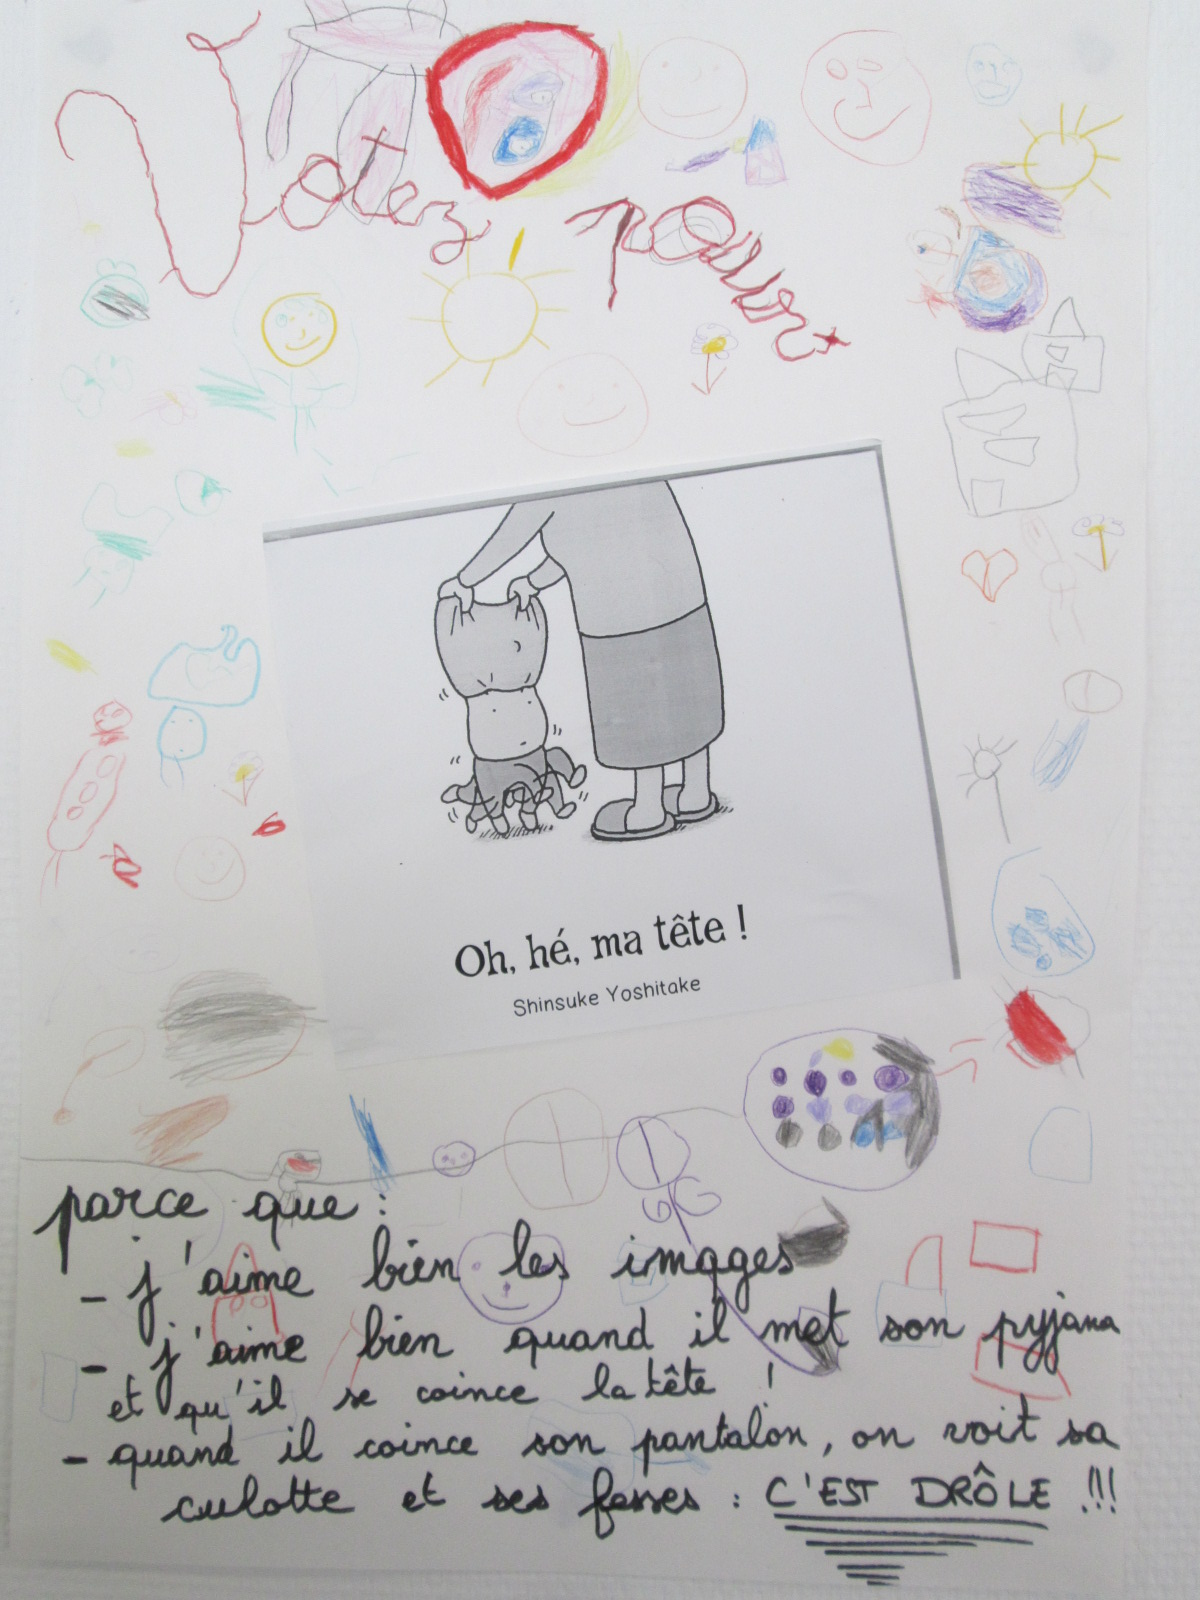 Votez pour
Oh, hé, ma tête !
Shinsuke Yoshitake
parce que :
- j'aime bien les images
- j'aime bien quand il met son pyjama
et qu'il se coince la tête !
- quand il coince son pantalon, on voit sa
culotte et ses fesses : C'EST DRÔLE !!!